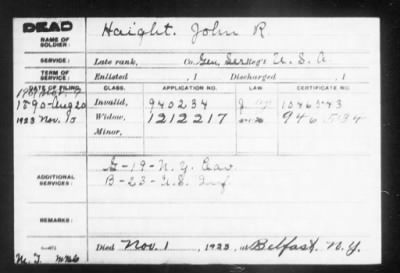 DEAD
NAME OF SOLDIER:
Haight. John R.
SERVICE:
Late rank, Co. Gen. Ser. Reg't U. S. A.
TERM OF SERVICE:
Enlisted , 1 Discharged , 1
DATE OF FILING. CLASS. APPLICATION NO. LAW CERTIFICATE NO.
1890 Aug 20 Invalid, 940234
1923 Nov. 15 Widow, 1212217
Minor,
ADDITIONAL SERVICES:
G-19-N.Y. Cav.
B-23-U.S. Inf.
REMARKS:
Died Nov. 1, 1923, at Belfast. N.Y.